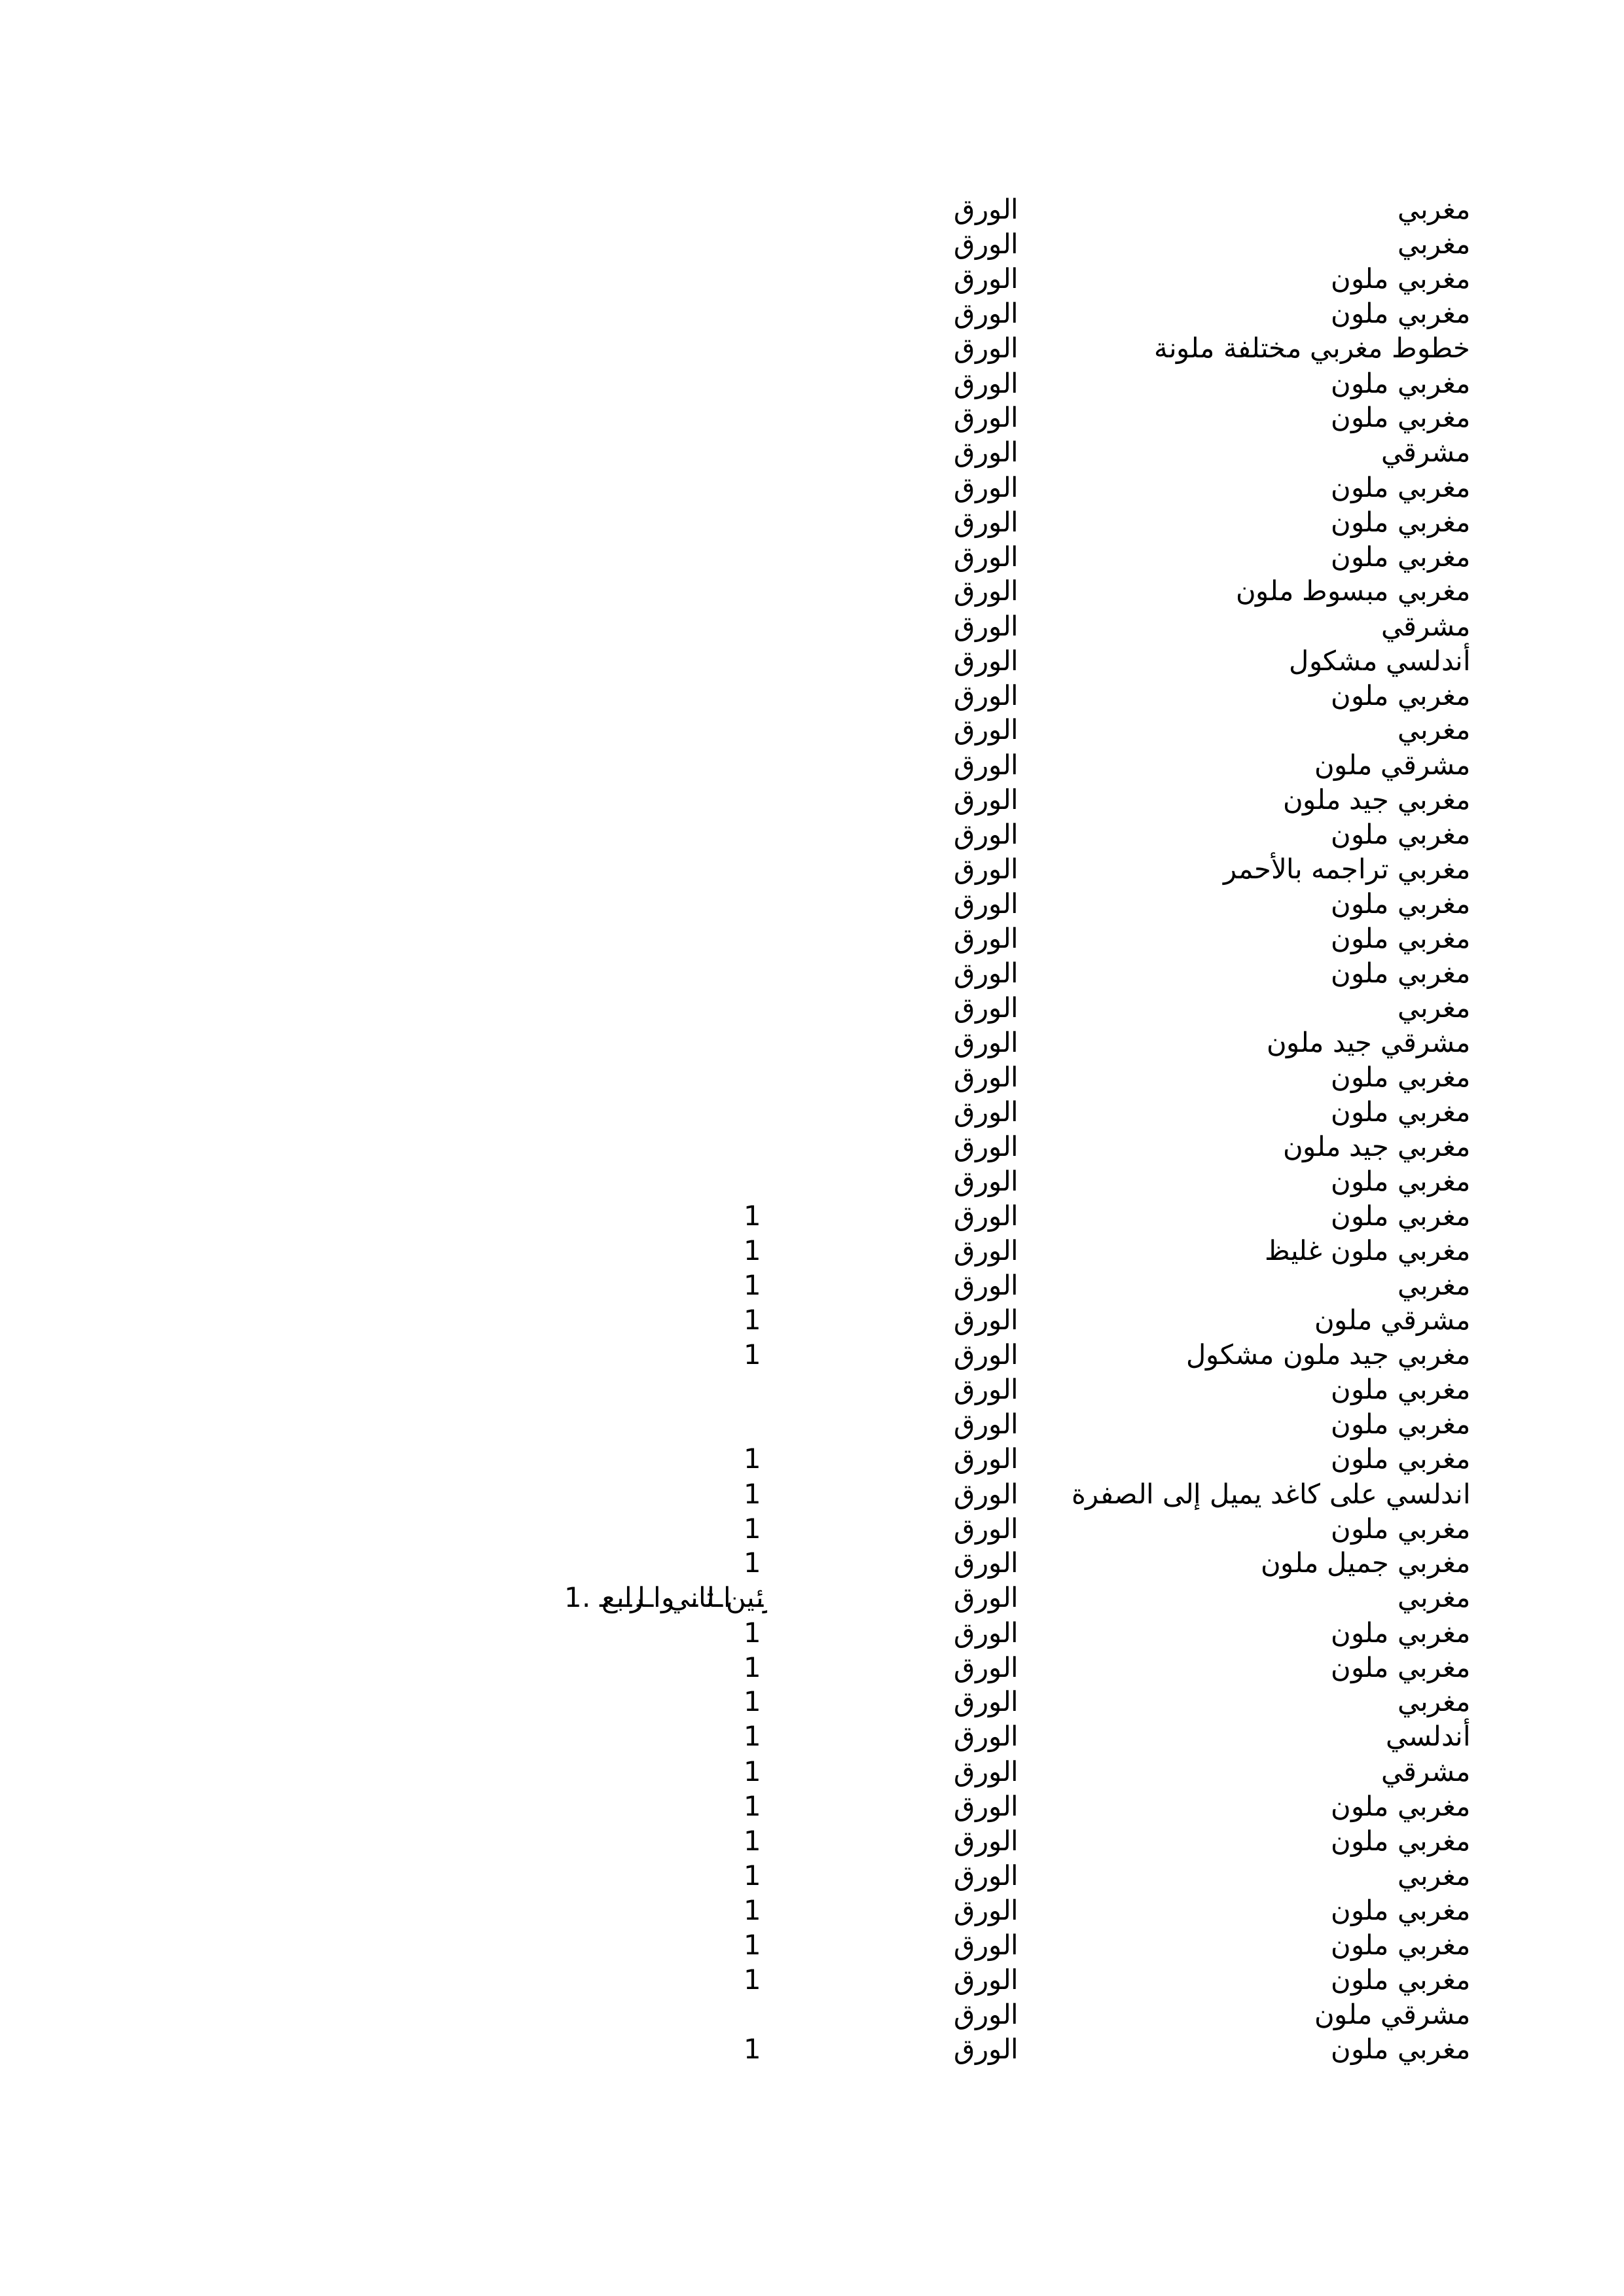 مغربي الورق
مغربي الورق
مغربي ملون الورق
مغربي ملون الورق
خطوط مغربي مختلفة ملونة الورق
مغربي ملون الورق
مغربي ملون الورق
مشرقي الورق
مغربي ملون الورق
مغربي ملون الورق
مغربي ملون الورق
مغربي مبسوط ملون الورق
مشرقي الورق
أندلسي مشكول الورق
مغربي ملون الورق
مغربي الورق
مشرقي ملون الورق
مغربي جيد ملون الورق
مغربي ملون الورق
مغربي تراجمه بالأحمر الورق
مغربي ملون الورق
مغربي ملون الورق
مغربي ملون الورق
مغربي الورق
مشرقي جيد ملون الورق
مغربي ملون الورق
مغربي ملون الورق
مغربي جيد ملون الورق
مغربي ملون الورق
مغربي ملون الورق 1
مغربي ملون غليظ الورق 1
مغربي الورق 1
مشرقي ملون الورق 1
مغربي جيد ملون مشكول الورق 1
مغربي ملون الورق
مغربي ملون الورق
مغربي ملون الورق 1
اندلسي على كاغد يميل إلى الصفرة الورق 1
مغربي ملون الورق 1
مغربي جميل ملون الورق 1
مغربي الورق الثاني والرابع .1
مغربي ملون الورق 1
مغربي ملون الورق 1
مغربي الورق 1
أندلسي الورق 1
مشرقي الورق 1
مغربي ملون الورق 1
مغربي ملون الورق 1
مغربي الورق 1
مغربي ملون الورق 1
مغربي ملون الورق 1
مغربي ملون الورق 1
مشرقي ملون الورق
مغربي ملون الورق 1